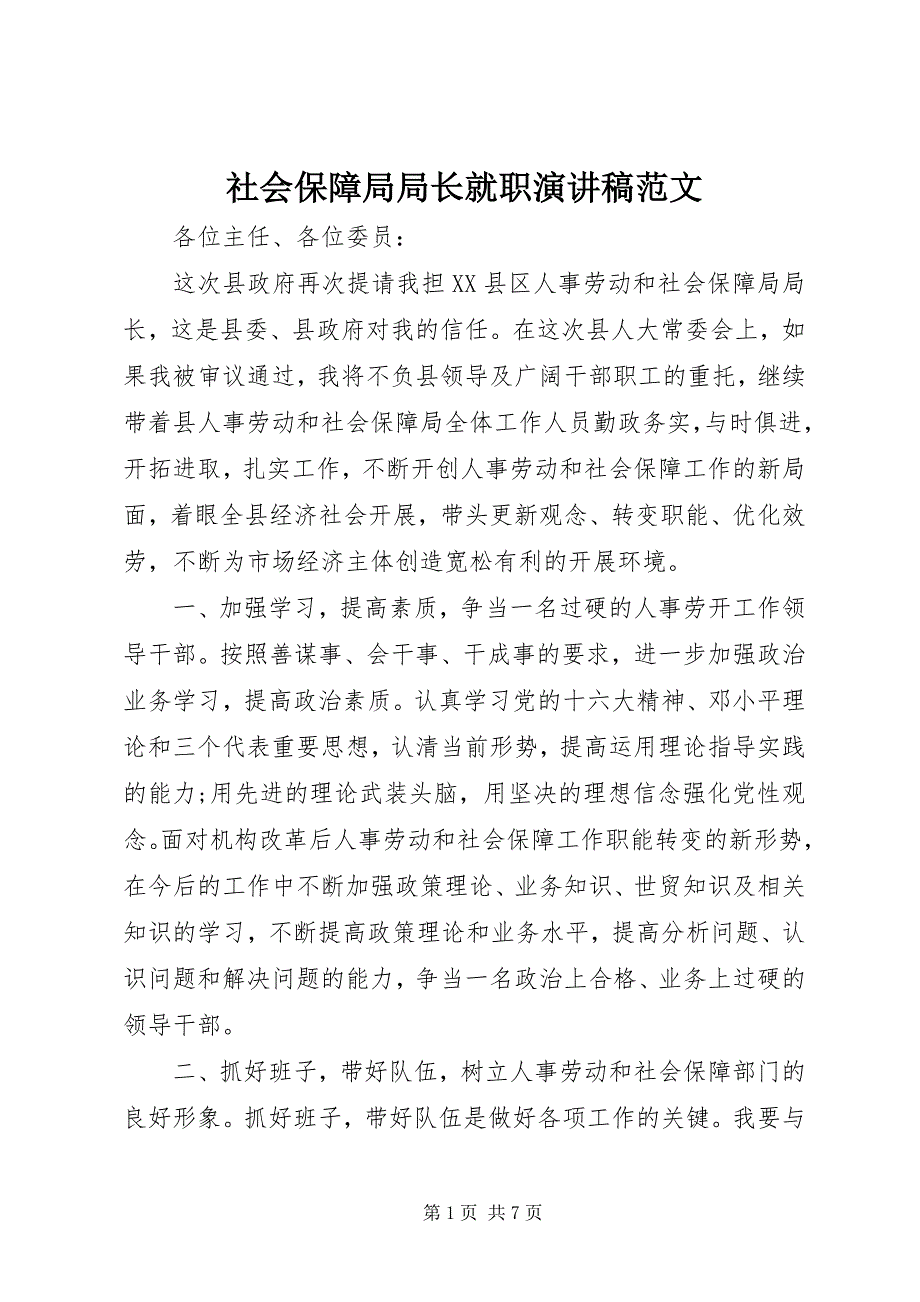 社会保障局局长就职演讲稿范文
各位主任、各位委员：
这次县政府再次提请我担 XX 县区人事劳动和社会保障局局
长，这是县委、县政府对我的信任。在这次县人大常委会上，如
果我被审议通过，我将不负县领导及广阔干部职工的重托，继续
带着县人事劳动和社会保障局全体工作人员勤政务实，与时俱进，
开拓进取，扎实工作，不断开创人事劳动和社会保障工作的新局
面，着眼全县经济社会开展，带头更新观念、转变职能、优化效
劳，不断为市场经济主体创造宽松有利的开展环境。
一、加强学习，提高素质，争当一名过硬的人事劳开工作领
导干部。按照善谋事、会干事、干成事的要求，进一步加强政治
业务学习，提高政治素质。认真学习党的十六大精神、邓小平理
论和三个代表重要思想，认清当前形势，提高运用理论指导实践
的能力;用先进的理论武装头脑，用坚决的理想信念强化党性观
念。面对机构改革后人事劳动和社会保障工作职能转变的新形势，
在今后的工作中不断加强政策理论、业务知识、世贸知识及相关
知识的学习，不断提高政策理论和业务水平，提高分析问题、认
识问题和解决问题的能力，争当一名政治上合格、业务上过硬的
领导干部。
二、抓好班子，带好队伍，树立人事劳动和社会保障部门的
良好形象。抓好班子，带好队伍是做好各项工作的关键。我要与
第 1 页 共 7 页